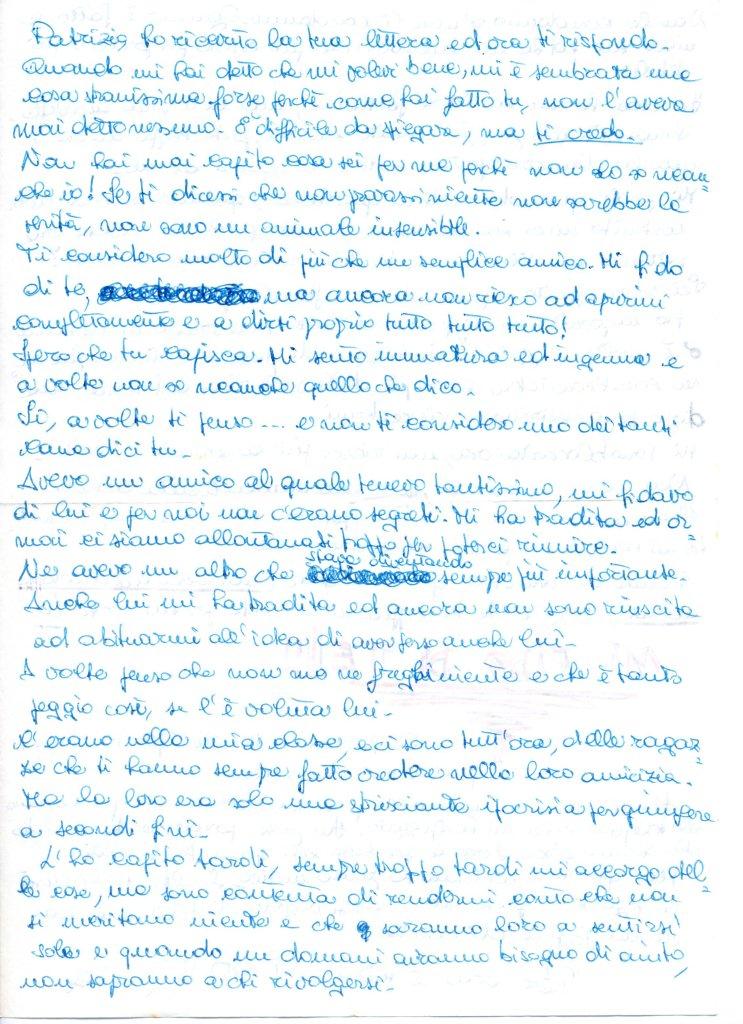 Patrizia, ho ricevuto la tua lettera ed ora ti rispondo.
Quando mi hai detto che mi volevi bene, mi è sembrata una
cosa stranissima forse perchè come hai fatto tu, non l'aveva
mai detto nessuno. È difficile da spiegare, ma ti credo.
Non hai mai capito cosa sei per me perchè non lo so nean=
che io! Se ti dicessi che non provassi niente non sarebbe la
verità, non sono un animale insensibile.
Ti considero molto di più che un semplice amico. Mi fido
di te, ma ancora non riesco ad aprirmi
completamente e a dirti proprio tutto tutto tutto!
Spero che tu capisca. Mi sento immatura ed ingenua e
a volte non so neanche quello che dico.
Sì, a volte ti penso ... e non ti considero uno dei tanti
come dici tu.
Avevo un amico al quale tenevo tantissimo, mi fidavo
di lui e per noi non c'erano segreti. Mi ha tradita ed or=
mai ci siamo allontanati troppo per poterci riunire.
Ne avevo un altro che stava diventando sempre più importante.
Anche lui mi ha tradita ed ancora non sono riuscita
ad abituarmi all'idea di aver perso anche lui.
A volte penso che non me ne freghi niente e che è tanto
peggio così, se l'è voluta lui.
C'erano nella mia classe, e ci sono tutt'ora, delle ragaz=
ze che ti hanno sempre fatto credere nella loro amicizia.
Ma la loro era solo una strisciante ipocrisia per giungere
a secondi fini.
L'ho capito tardi, sempre troppo tardi mi accorgo del=
le cose, ma sono contenta di rendermi conto che non
si meritano niente e che saranno loro a sentirsi
sole e quando un domani avranno bisogno di aiuto,
non sapranno a chi rivolgersi.